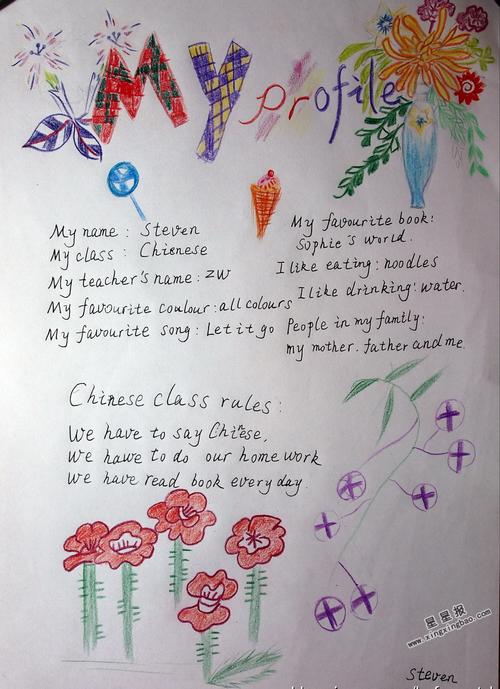 My profile
My name : Steven
My class : Chienese
My teacher's name : zw
My favourite coulour : all colours
My favourite song : Let it go
My favourite book :
Sophie's world.
I like eating : noodles
I like drinking : water.
People in my family :
my mother. father and me.
Chinese class rules :
We have to say Chiese,
We hawe to do our home work
We have read book every day.
星星报
www.xingxingbao.com
Steven